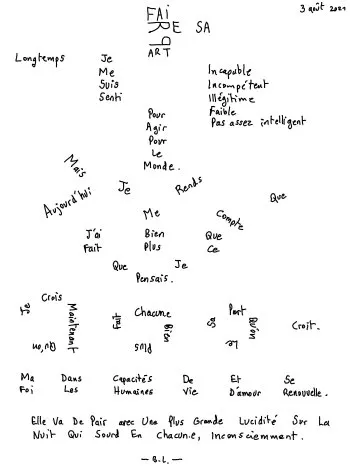 3 août 2021
FAI
RE SA
PART
Longtemps Je
Me Incapable
Suis Incompétent
Senti Illégitime
Pour Faible
Agir Pas assez intelligent
Pour
Le
Monde.
Mais
Aujourd'hui Je Rends
Me Compte Que
J'ai Bien Que
Fait Plus Ce
Que Je
Pensais.
Je Crois Maintenant Qu'on
Fait Chacune Bien Plus
Sa Part Qu'on Le Croit.
Ma Dans Capacités De Et Se
Foi Les Humaines Vie D'amour Renouvelle.
Elle Va De Pair avec Une Plus Grande Lucidité Sur La
Nuit Qui Sourd En Chacun.e, Inconsciemment.
— B.L. —